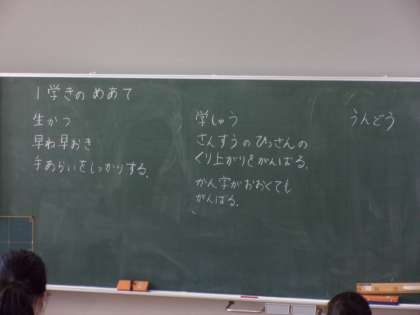 1学きの めあて
生かつ
早ね早おき
手あらいをしっかりする。
学しゅう
さんすうのひっさんの
くり上がりをがんばる。
かん字がおおくても
がんばる。
うんどう